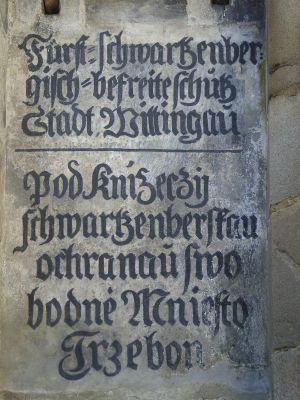 Fürst=schwartzenber=
gisch=befreite schutz
Stadt Wittingau
Pod Knižeczij
schwartzenberskau
ochranaú swo
bodné Mniesto
Trzebon